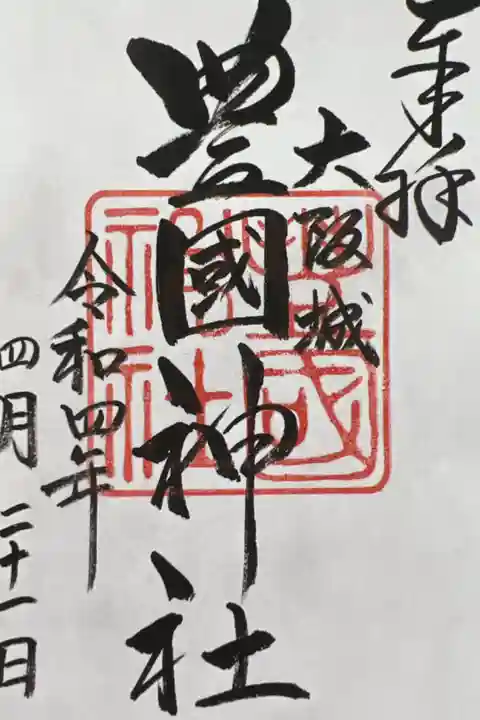 奉拝
大阪城
豊國神社
令和四年
四月二十一日
豊國神社